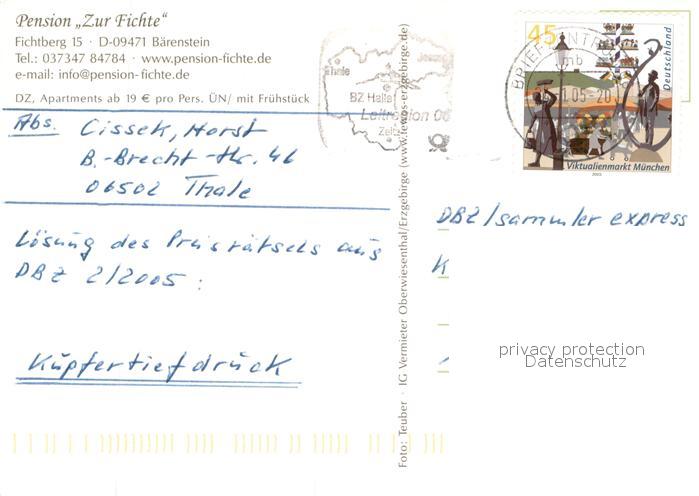 Pension „Zur Fichte“
Fichtberg 15 · D-09471 Bärenstein
Tel.: 037347 84784 · www.pension-fichte.de
e-mail: info@pension-fichte.de
DZ, Apartments ab 19 € pro Pers. ÜN/ mit Frühstück
Abs. Cissek, Horst
B.-Brecht-Str. 46
06502 Thale
Lösung des Preisrätsels aus
DBZ 2/2005:
Kupfertiefdruck
Foto: Teuber · IG Vermieter Oberwiesenthal/Erzgebirge (www.fewos-erzgebirge.de)
Thale
BZ Halle
Leitregion 06
Zeitz
BRIEFZENTRUM
mb
.05-20
45
Deutschland
Viktualienmarkt München
2003
DBZ/sammler express
K
privacy protection
Datenschutz